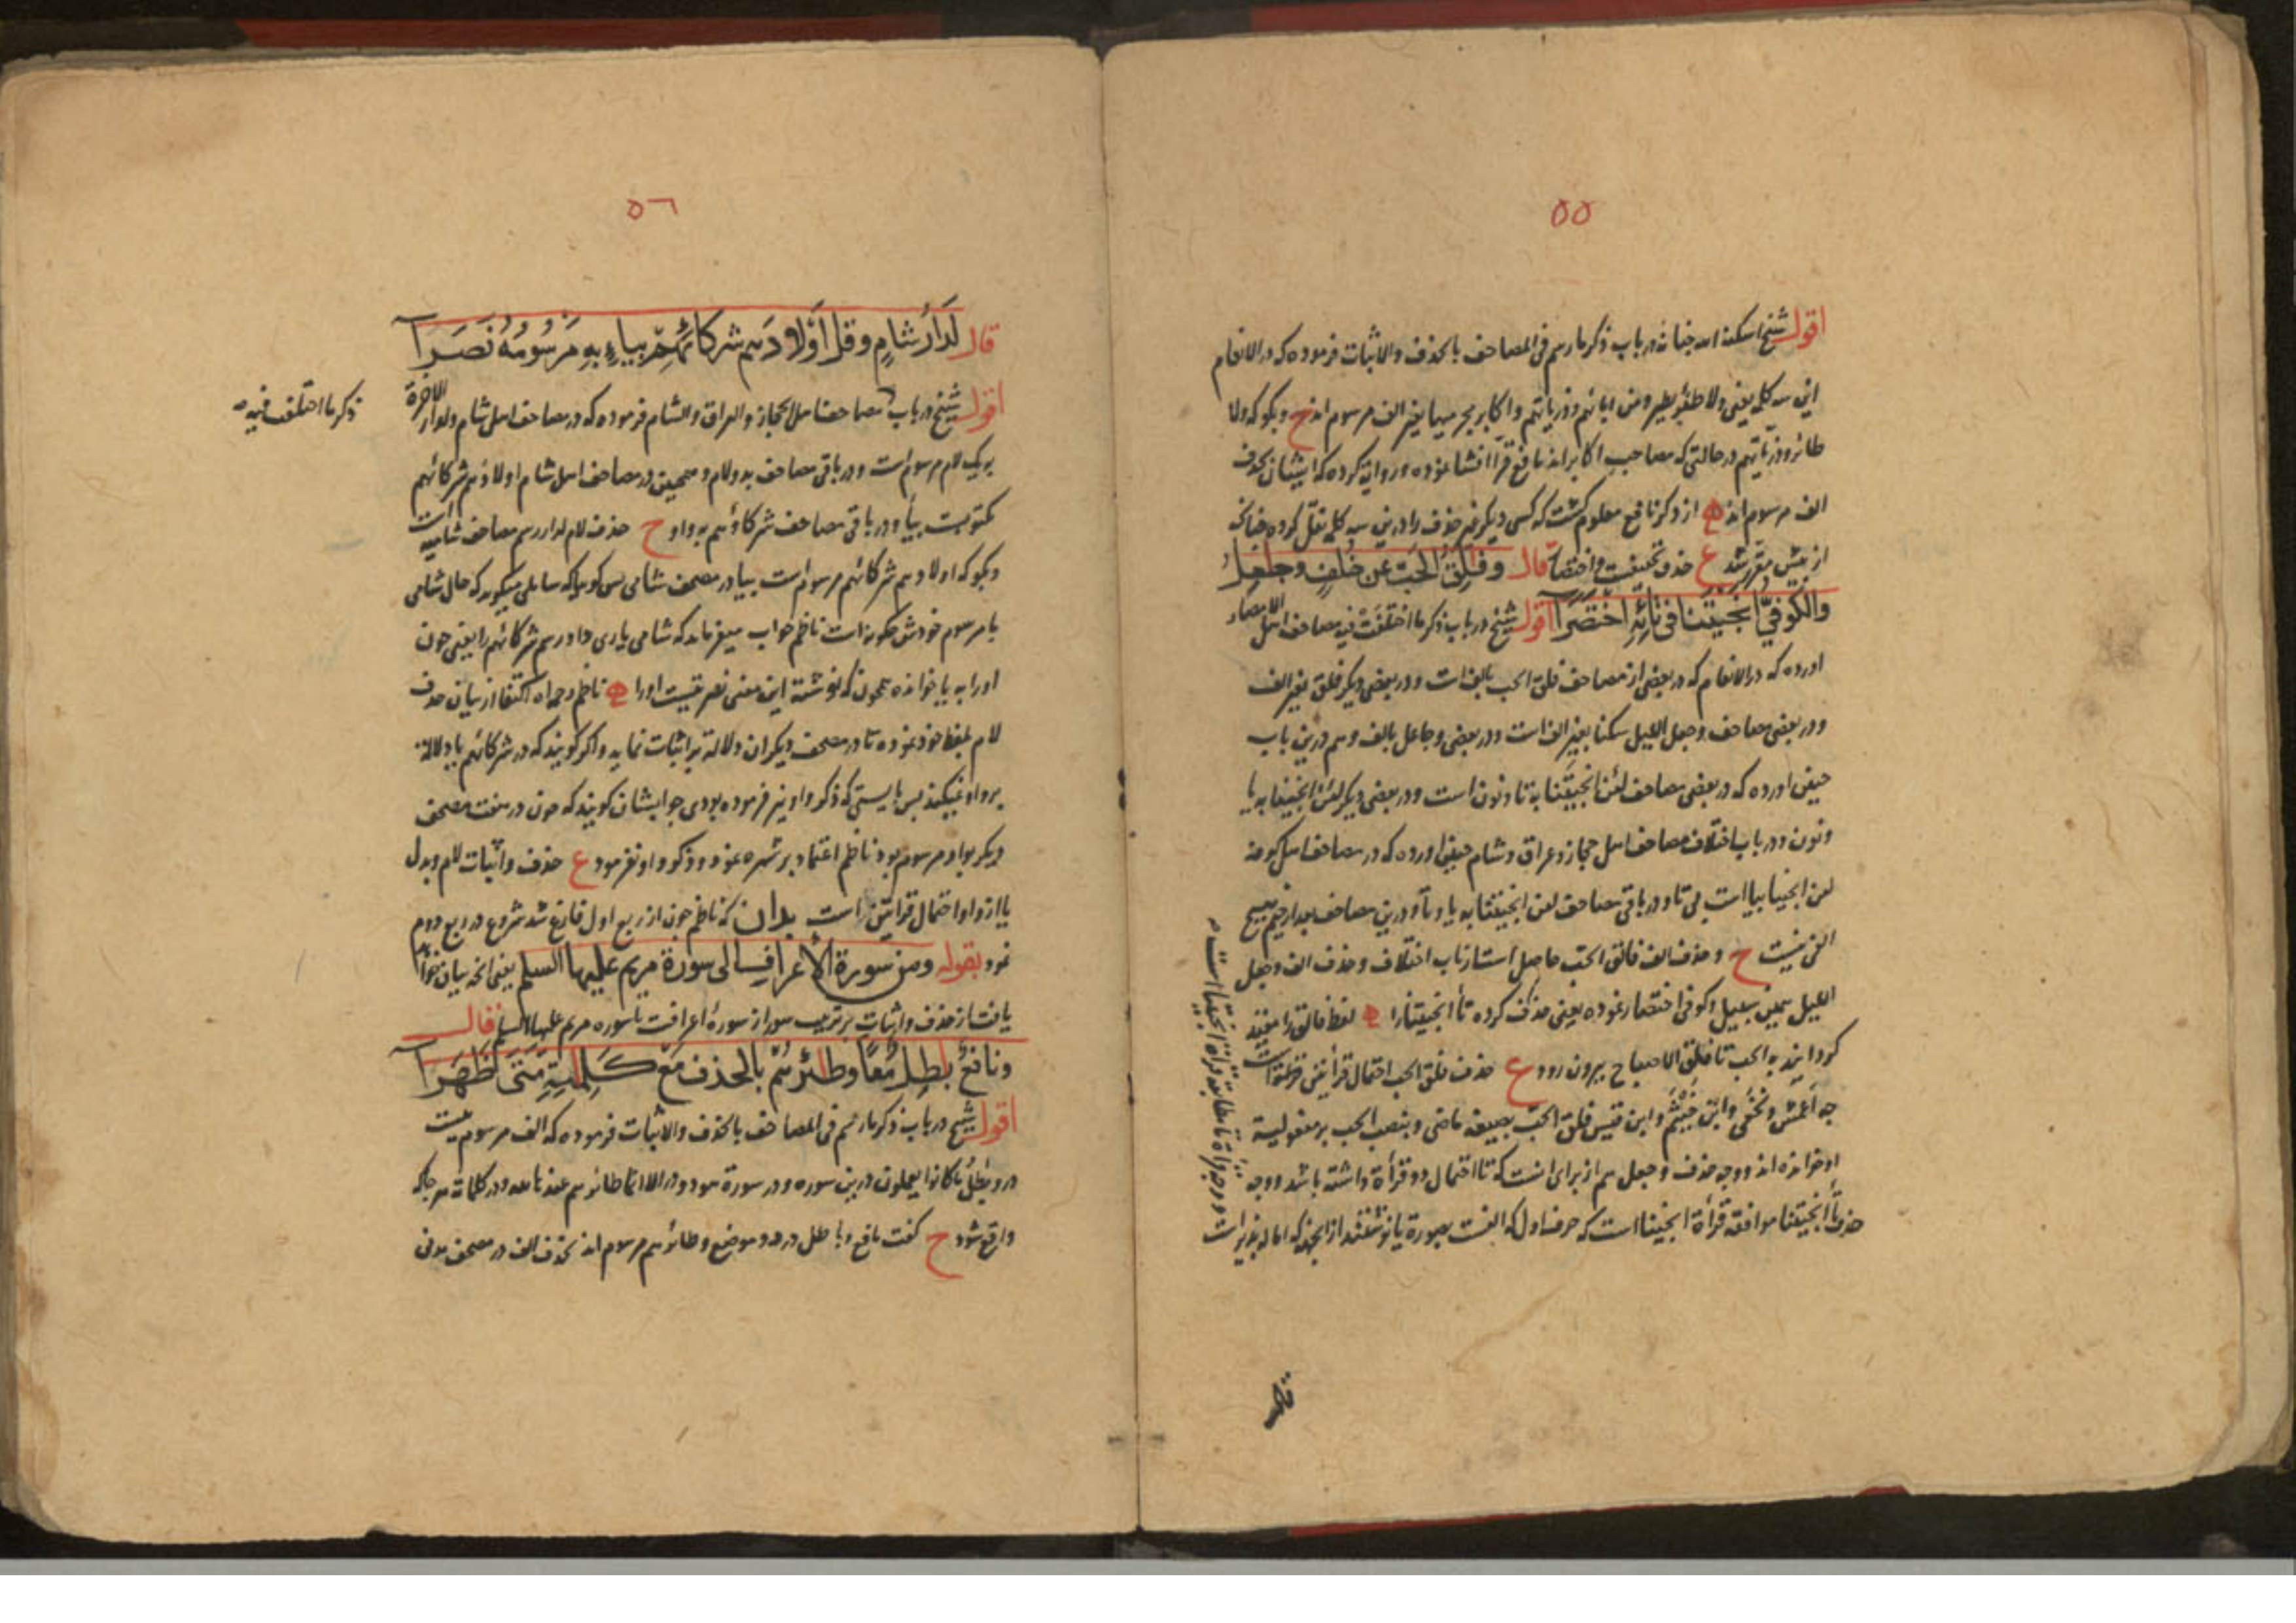 ٥٥
اقول شیخ اسکنه الله جنانه در باب ذکر ما رسم فی المصاحف بالحذف والاثبات فرموده که در الانعام
این سه کلمه یعنی ولا طئر یطیر ومن ابائهم وذریاتهم واکابر مجرمیها بغیر الف مرسوم اند ح وبکو که ولا
طائر وذریاتهم در حالتی که مصاحب اکابر اند نافع قرا افشا نموده وروایة کرده که ایشان بحذف
الف مرسوم اند از ذکر نافع معلوم کشت که کسی دیکر غیر حذف را درین سه کلمه نقل کرده چنانکه
از پیش مقرر شد ع حذف تخفیفست و اختصار قال وَفَلِقُ الْحَبِّ عَنْ خُلْفٍ وَجٰعِلُ
وَالْكُوفِيُّ اَنْجَيْتَنَا فِي تَائِهِ اخْتَصَرَا اقول شیخ در باب ذکر ما اختلفت فیه مصاحف اهل الامصار
اورده که در الانعام که در بعضی از مصاحف فلق الحب بالف است ودر بعضی دیکر فلق بغیر الف
ودر بعضی مصاحف وجعل اللیل سکنا بغیر الف است ودر بعضی وجاعل بالف وهم درین باب
چنین اورده که در بعضی مصاحف لئن انجیتنا به تا ونون است ودر بعضی دیکر لئن انجینا به یا
ونون ودر باب اختلاف مصاحف اهل حجاز وعراق وشام چنین اورده که در مصاحف اهل کوفه
لئن انجینا بیا است بی تا ودر باقی مصاحف لئن انجیتنا به یا وتا ودرین مصاحف بعد از جیم هیچ
الفی نیست ح وحذف الف فالق الحب حاصل است از باب اختلاف وحذف الف وجعل
اللیل همین سبیل وکوفی اختصار نموده یعنی حذف کرده تا انجیتنا را لفظ فالق را مقید
کردانید به الحب تا فلق الاصباح بیرون رود ع حذف فلق الحب احتمال قرأتین
چه اعمش ونخعی وابن خیثم وابن قیس فلق الحب بصیغه ماضی وبنصب الحب بر مفعولیة
او خوانده اند ووجه حذف وجعل هم از برای انست که تا احتمال دو قرأة داشته باشد ووجه
حذف تا انجیتنا موافقه قرأة انجینا است که حرف اول که الفست بصورة یا نوشتند از انجهة که اماله پذیر است
ووجه قرأة تا مطابقه قرأة انجیتنا است
قال
٥٦
قال لَدَارُ شَامٍ وَقُلْ اَوْلَادَهُمْ شُرَكَائِهِمْ بِيَاءٍ بِهِ مَرْسُومُهُ نَصَرَا
ذکر ما اختلف فیه
اقول شیخ در باب مصاحف اهل الحجاز والعراق والشام فرموده که در مصاحف اهل شام ولدار الاخرة
بیک لام مرسوم است ودر باقی مصاحف بدو لام وهمچنین در مصاحف اهل شام اولادهم شرکائهم
مکتوبست بیا ودر باقی مصاحف شرکاؤهم به واو ح حذف لام لدار رسم مصاحف شامیه است
وبکو که اولادهم شرکائهم مرسوم است بیا در مصحف شامی پس کوییا که سایلی میکوید که حال شامی
با مرسوم خودش چکونه است ناظم جواب میفرماید که شامی یاری داد رسم شرکائهم را یعنی چون
او را به یا خوانده همچون که نوشته این معنی نصرتیست او را ناظم رحمه الله اکتفا از بیان حذف
لام بلفظ خود نموده تا در مصحف دیکران دلالة بر اثبات نماید واکر کویند که در شرکائهم یا دلالة
بر واو نمیکند پس بایستی که ذکر واو نیز فرموده بودی جوابشان کویند که چون در هفت مصحف
دیکر بواو مرسوم بود ناظم اعتماد بر شهره نمود وذکر واو نفرمود ع حذف واثبات لام وبدل
یا از واو احتمال قرأتین است بدان که ناظم چون از ربع اول فارغ شد شروع در ربع دوم
نمود بقوله ومن سورة الأعراف الى سورة مريم عليها السلم یعنی انچه بیان خواهد
یافت از حذف واثبات بر ترتیب سور از سورهٔ اعرافت تا سوره مریم علیها السلم قال
وَنَافِعٌ بٰطِلٌ مَعًا وَطٰئِرُهُمْ بِالْحَذْفِ مَعْ كَلِمٰتِهِ مَتَى ظَهَرَا
اقول شیخ در باب ذکر ما رسم فی المصاحف بالحذف والاثبات فرموده که الف مرسوم نیست
در وبطل ما کانوا یعملون درین سوره ودر سورة هود ودر الا انما طائرهم عند الله ودر کلماته هر جا که
واقع شود ح کفت نافع وباطل در هر دو موضع وطائرهم مرسوم اند بحذف الف در مصحف مدنی